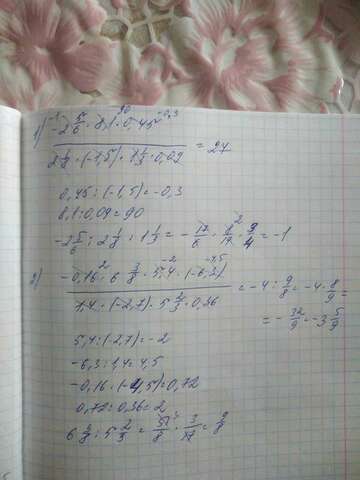 1) -2 5/6 · 8,1 · 0,45
2 1/8 · (-1,5) · 1 1/3 · 0,09 = 27
0,45 : (-1,5) = -0,3
8,1 : 0,09 = 90
-2 5/6 : 2 1/8 : 1 1/3 = -17/6 · 8/17 · 3/4 = -1
2) -0,16 · 6 3/8 · 5,4 · (-6,3)
1,4 · (-2,7) · 5 2/3 · 0,36 = -4 : 9/8 = -4 · 8/9 =
= -32/9 = -3 5/9
5,4 : (-2,7) = -2
-6,3 : 1,4 = 4,5
-0,16 · (-4,5) = 0,72
0,72 : 0,36 = 2
6 3/8 : 5 2/3 = 51/8 · 3/17 = 9/8